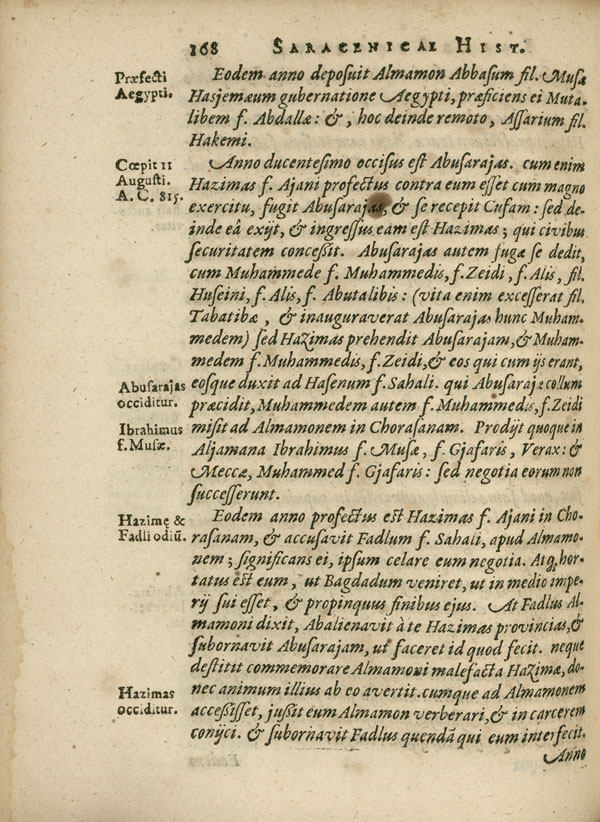 168 SARACENICAE HIST.
Præfecti
Aegypti.
Eodem anno deposuit Almamon Abbasum fil. Musæ
Hasjemæum gubernatione Aegypti, præficiens ei Muta-
libem f. Abdallæ: &, hoc deinde remoto, Assarium fil.
Hakemi.
Cœpit 11
Augusti.
A. C. 815.
Anno ducentesimo occisus est Abusarajas. cum enim
Hazimas f. Ajani profectus contra eum esset cum magno
exercitu, fugit Abusarajas, & se recepit Cufam: sed de-
inde eâ exijt, & ingressus eam est Hazimas; qui civibus
securitatem concessit. Abusarajas autem fugæ se dedit,
cum Muhammede f. Muhammedis, f. Zeidi, f. Alis, fil.
Huseini, f. Alis, f. Abutalibis: (vita enim excesserat fil.
Tabatibæ, & inauguraverat Abusarajas hunc Muham-
medem) sed Hazimas prehendit Abusarajam, & Muham-
medem f. Muhammedis, f. Zeidi, & eos qui cum ijs erant,
Abusarajas
occiditur.
eosque duxit ad Hasenum f. Sahali. qui Abusarajæ collum
præcidit, Muhammedem autem f. Muhammedis, f. Zeidi
Ibrahimus
f. Musæ.
misit ad Almamonem in Chorasanam. Prodijt quoque in
Aljamana Ibrahimus f. Musæ, f. Gjafaris, Verax: &
Meccæ, Muhammed f. Gjafaris: sed negotia eorum non
successerunt.
Hazimę &
Fadli odiũ.
Eodem anno profectus est Hazimas f. Ajani in Cho-
rasanam, & accusavit Fadlum f. Sahali, apud Almamo-
nem; significans ei, ipsum celare eum negotia. Atq; hor-
tatus est eum, ut Bagdadum veniret, ut in medio impe-
rij sui esset, & propinquus finibus ejus. At Fadlus Al-
mamoni dixit, Abalienavit à te Hazimas provincias, &
subornavit Abusarajam, ut faceret id quod fecit. neque
destitit commemorare Almamoni malefacta Hazimæ, do-
Hazimas
occiditur.
nec animum illius ab eo avertit. cumque ad Almamonem
accessisset, jussit eum Almamon verberari, & in carcerem
conijci. & subornavit Fadlus quendã qui eum interfecit.
Anno